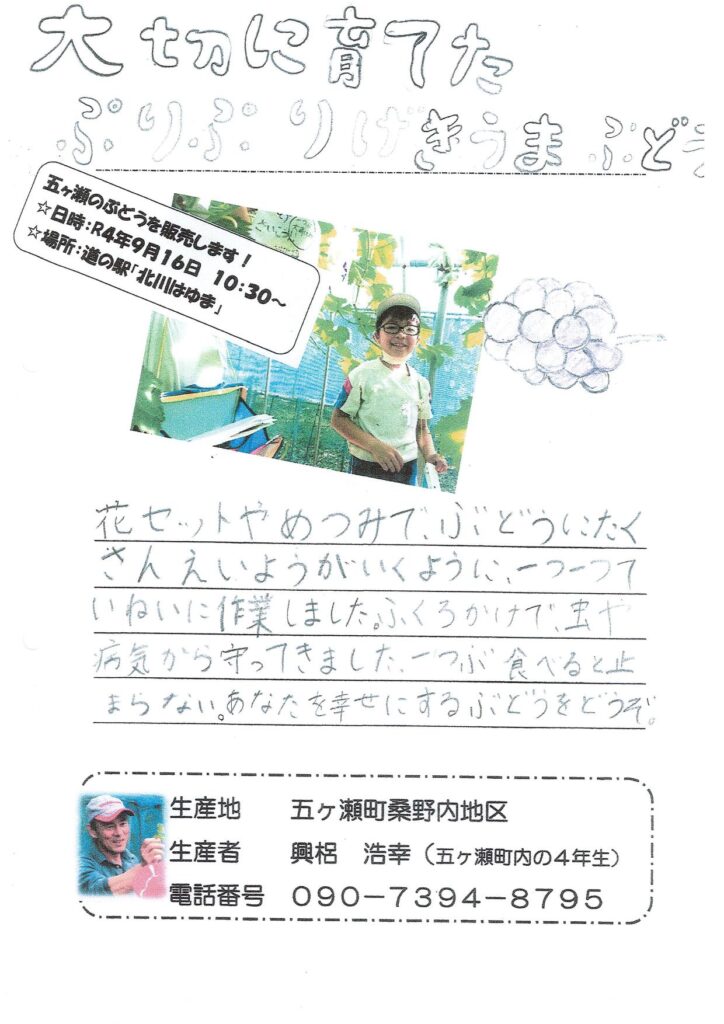 大切に育てた
ぷりぷりげきうまぶどう
五ヶ瀬のぶどうを販売します！
☆日時：R4年9月16日　10：30～
☆場所：道の駅「北川はゆま」
花セットやめつみで、ぶどうにたく
さんえいようがいくように、一つ一つて
いねいに作業しました。ふくろかけで、虫や
病気から守ってきました。一つぶ食べると止
まらない。あなたを幸せにするぶどうをどうぞ。
生産地　五ヶ瀬町桑野内地区
生産者　興梠　浩幸（五ヶ瀬町内の4年生）
電話番号　090－7394－8795